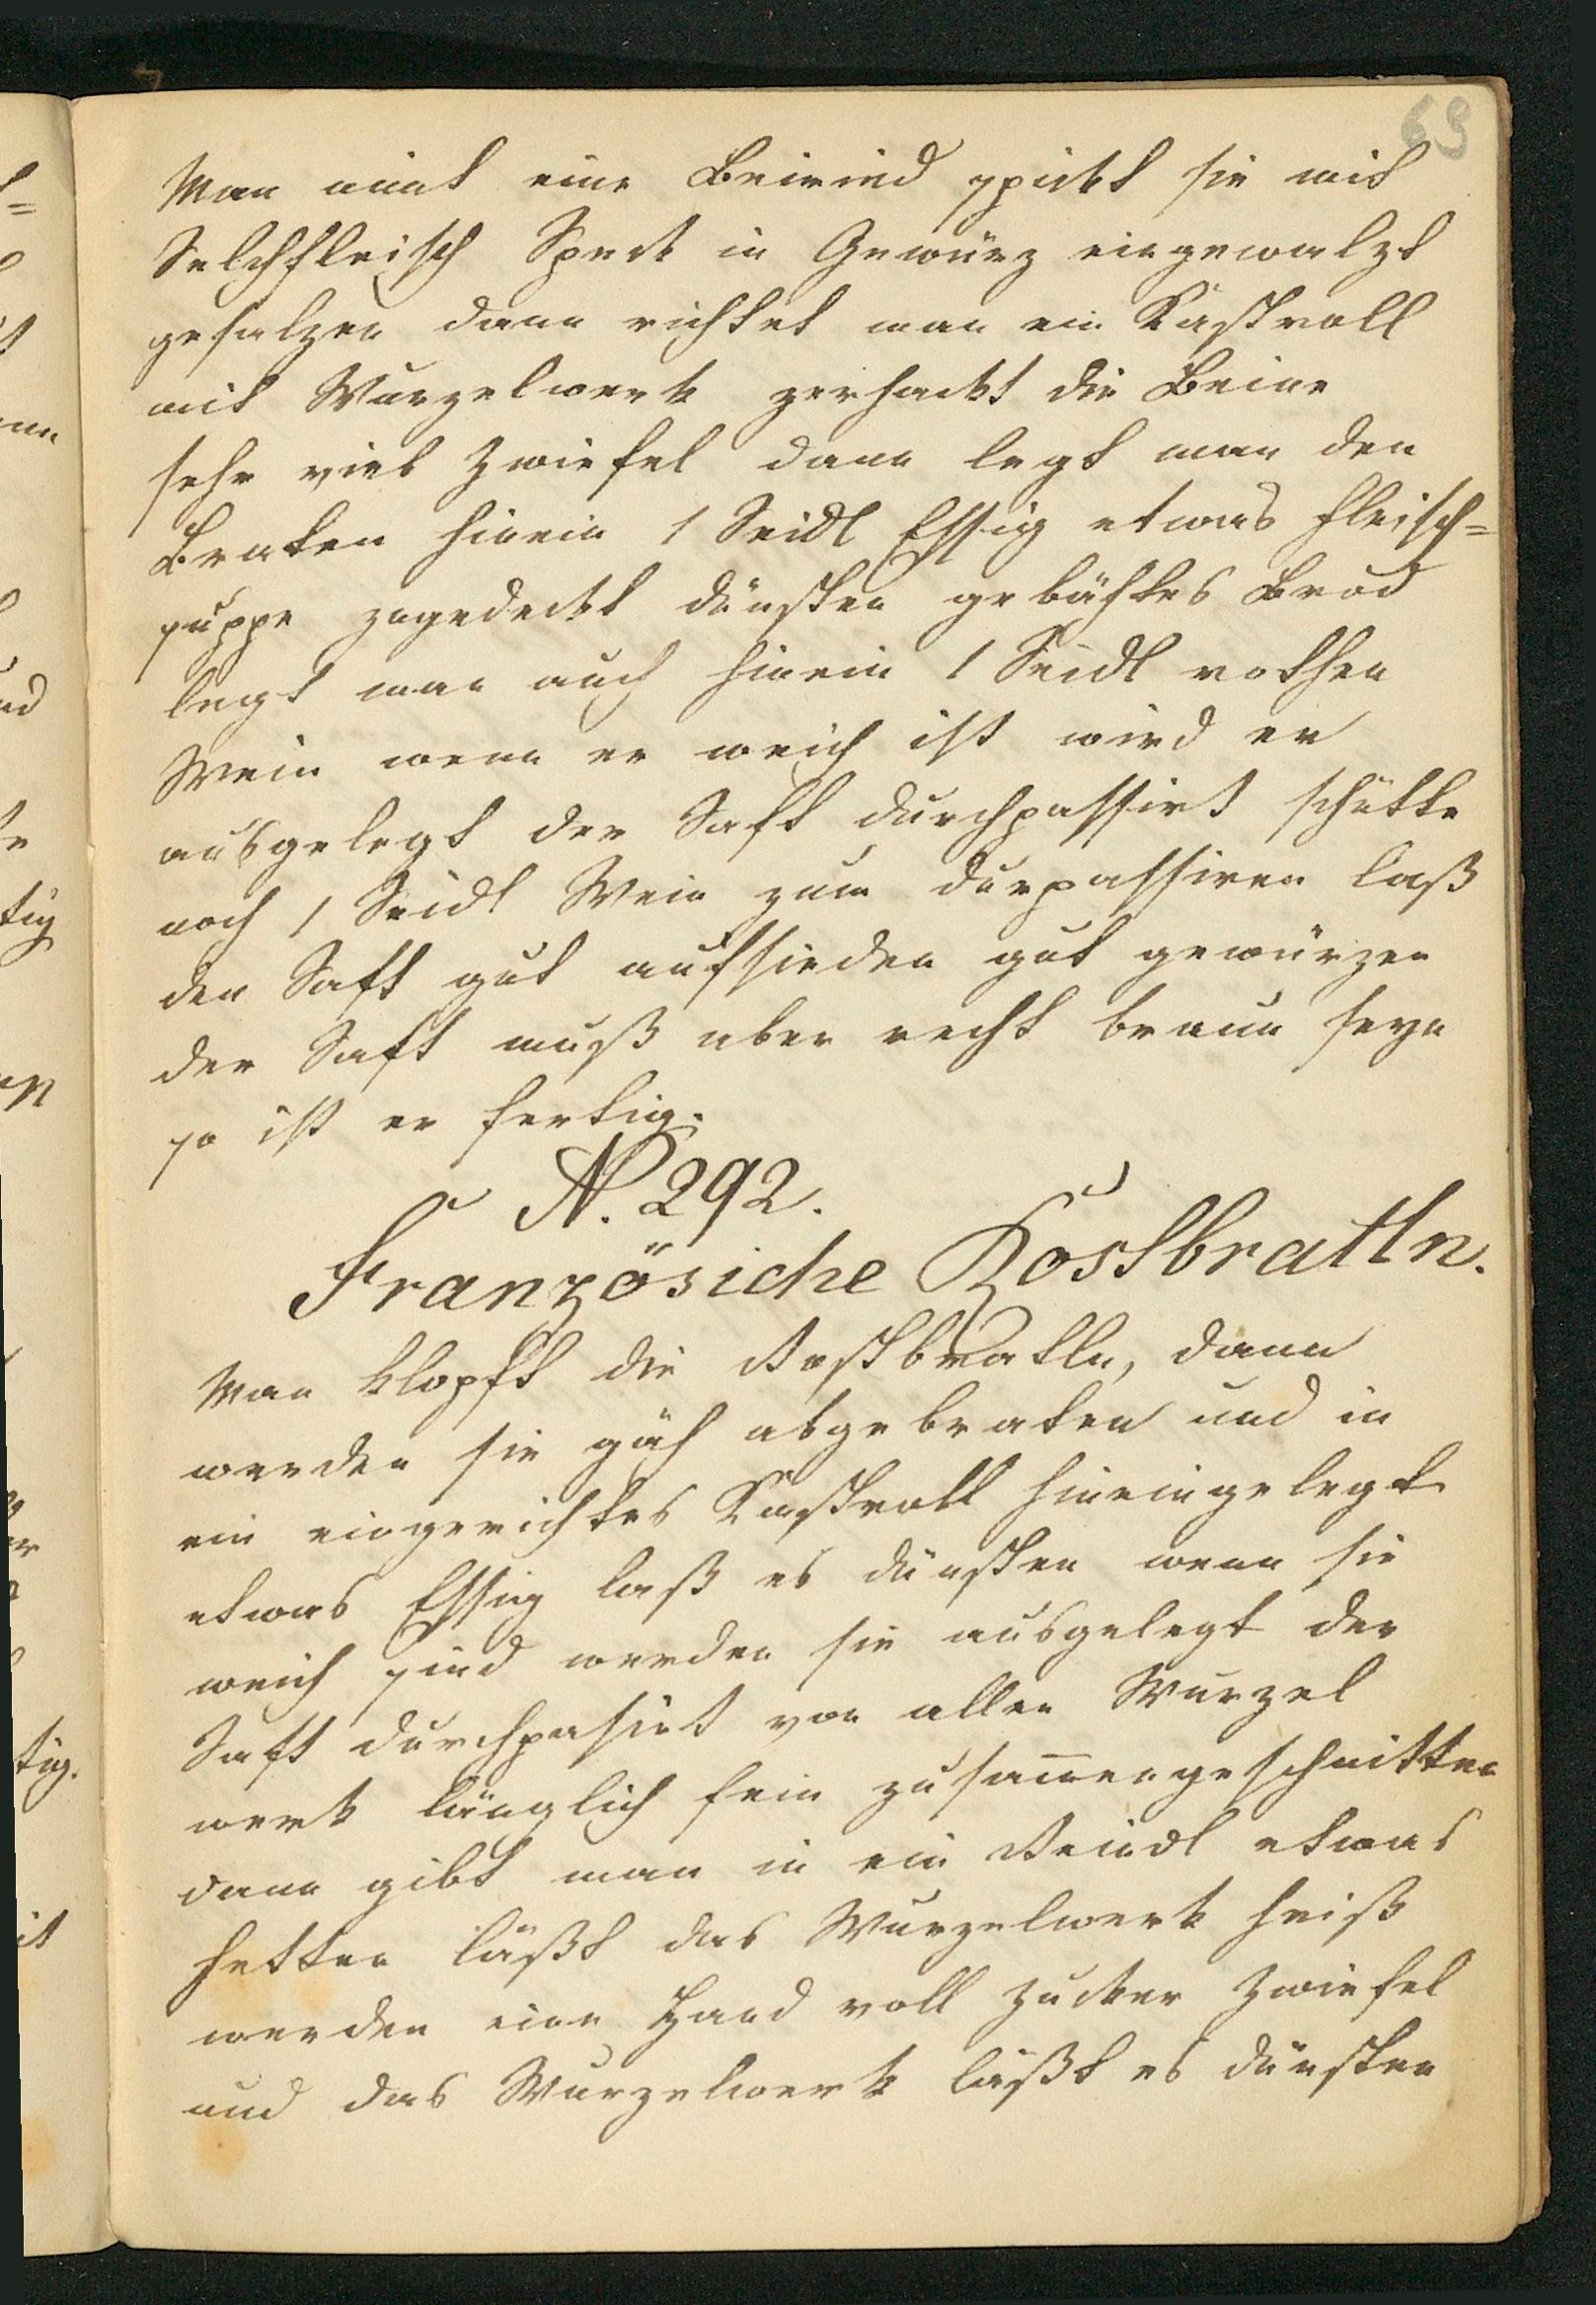 69
Man nimt eine Beiried spickt sie mit
Selchfleisch Speck in Gewürz eingewalzt
gesalzen dann richtet man ein Kastroll
mit Wurzelwerk zerhackt die Beine
sehr viel Zwiefel dann legt man den
Braten hinein 1 Seidl Essig etwas Fleisch=
suppe zugedeckt dünsten gebähtes Brod
legt man auch hinein 1 Seidl rothen
Wein wenn er weich ist wird er
ausgelegt der Saft durchpassirt schütte
noch 1 Seidl Wein zum durpassiren laß
den Saft gut aufsieden gut gewürzen
der Saft muß aber recht braun seyn
so ist er fertig.
N. 292.
Französiche Rostbratln.
Man klopft die Rostbratln, dann
werden sie gäh abgebraten und in
ein eingerichtes Kastroll hineingelegt
etwas Essig laß es dünsten wenn sie
weich sind werden sie ausgelegt der
Saft durchpasirt von allen Wurzel
werk länglich fein zusam̅engeschnitten
dann gibt man in ein Reindl etwas
Fetten läßt das Wurzelwerk heiß
werden eine Hand voll Zucker Zwiefel
und das Wurzelwerk läßt es dünsten